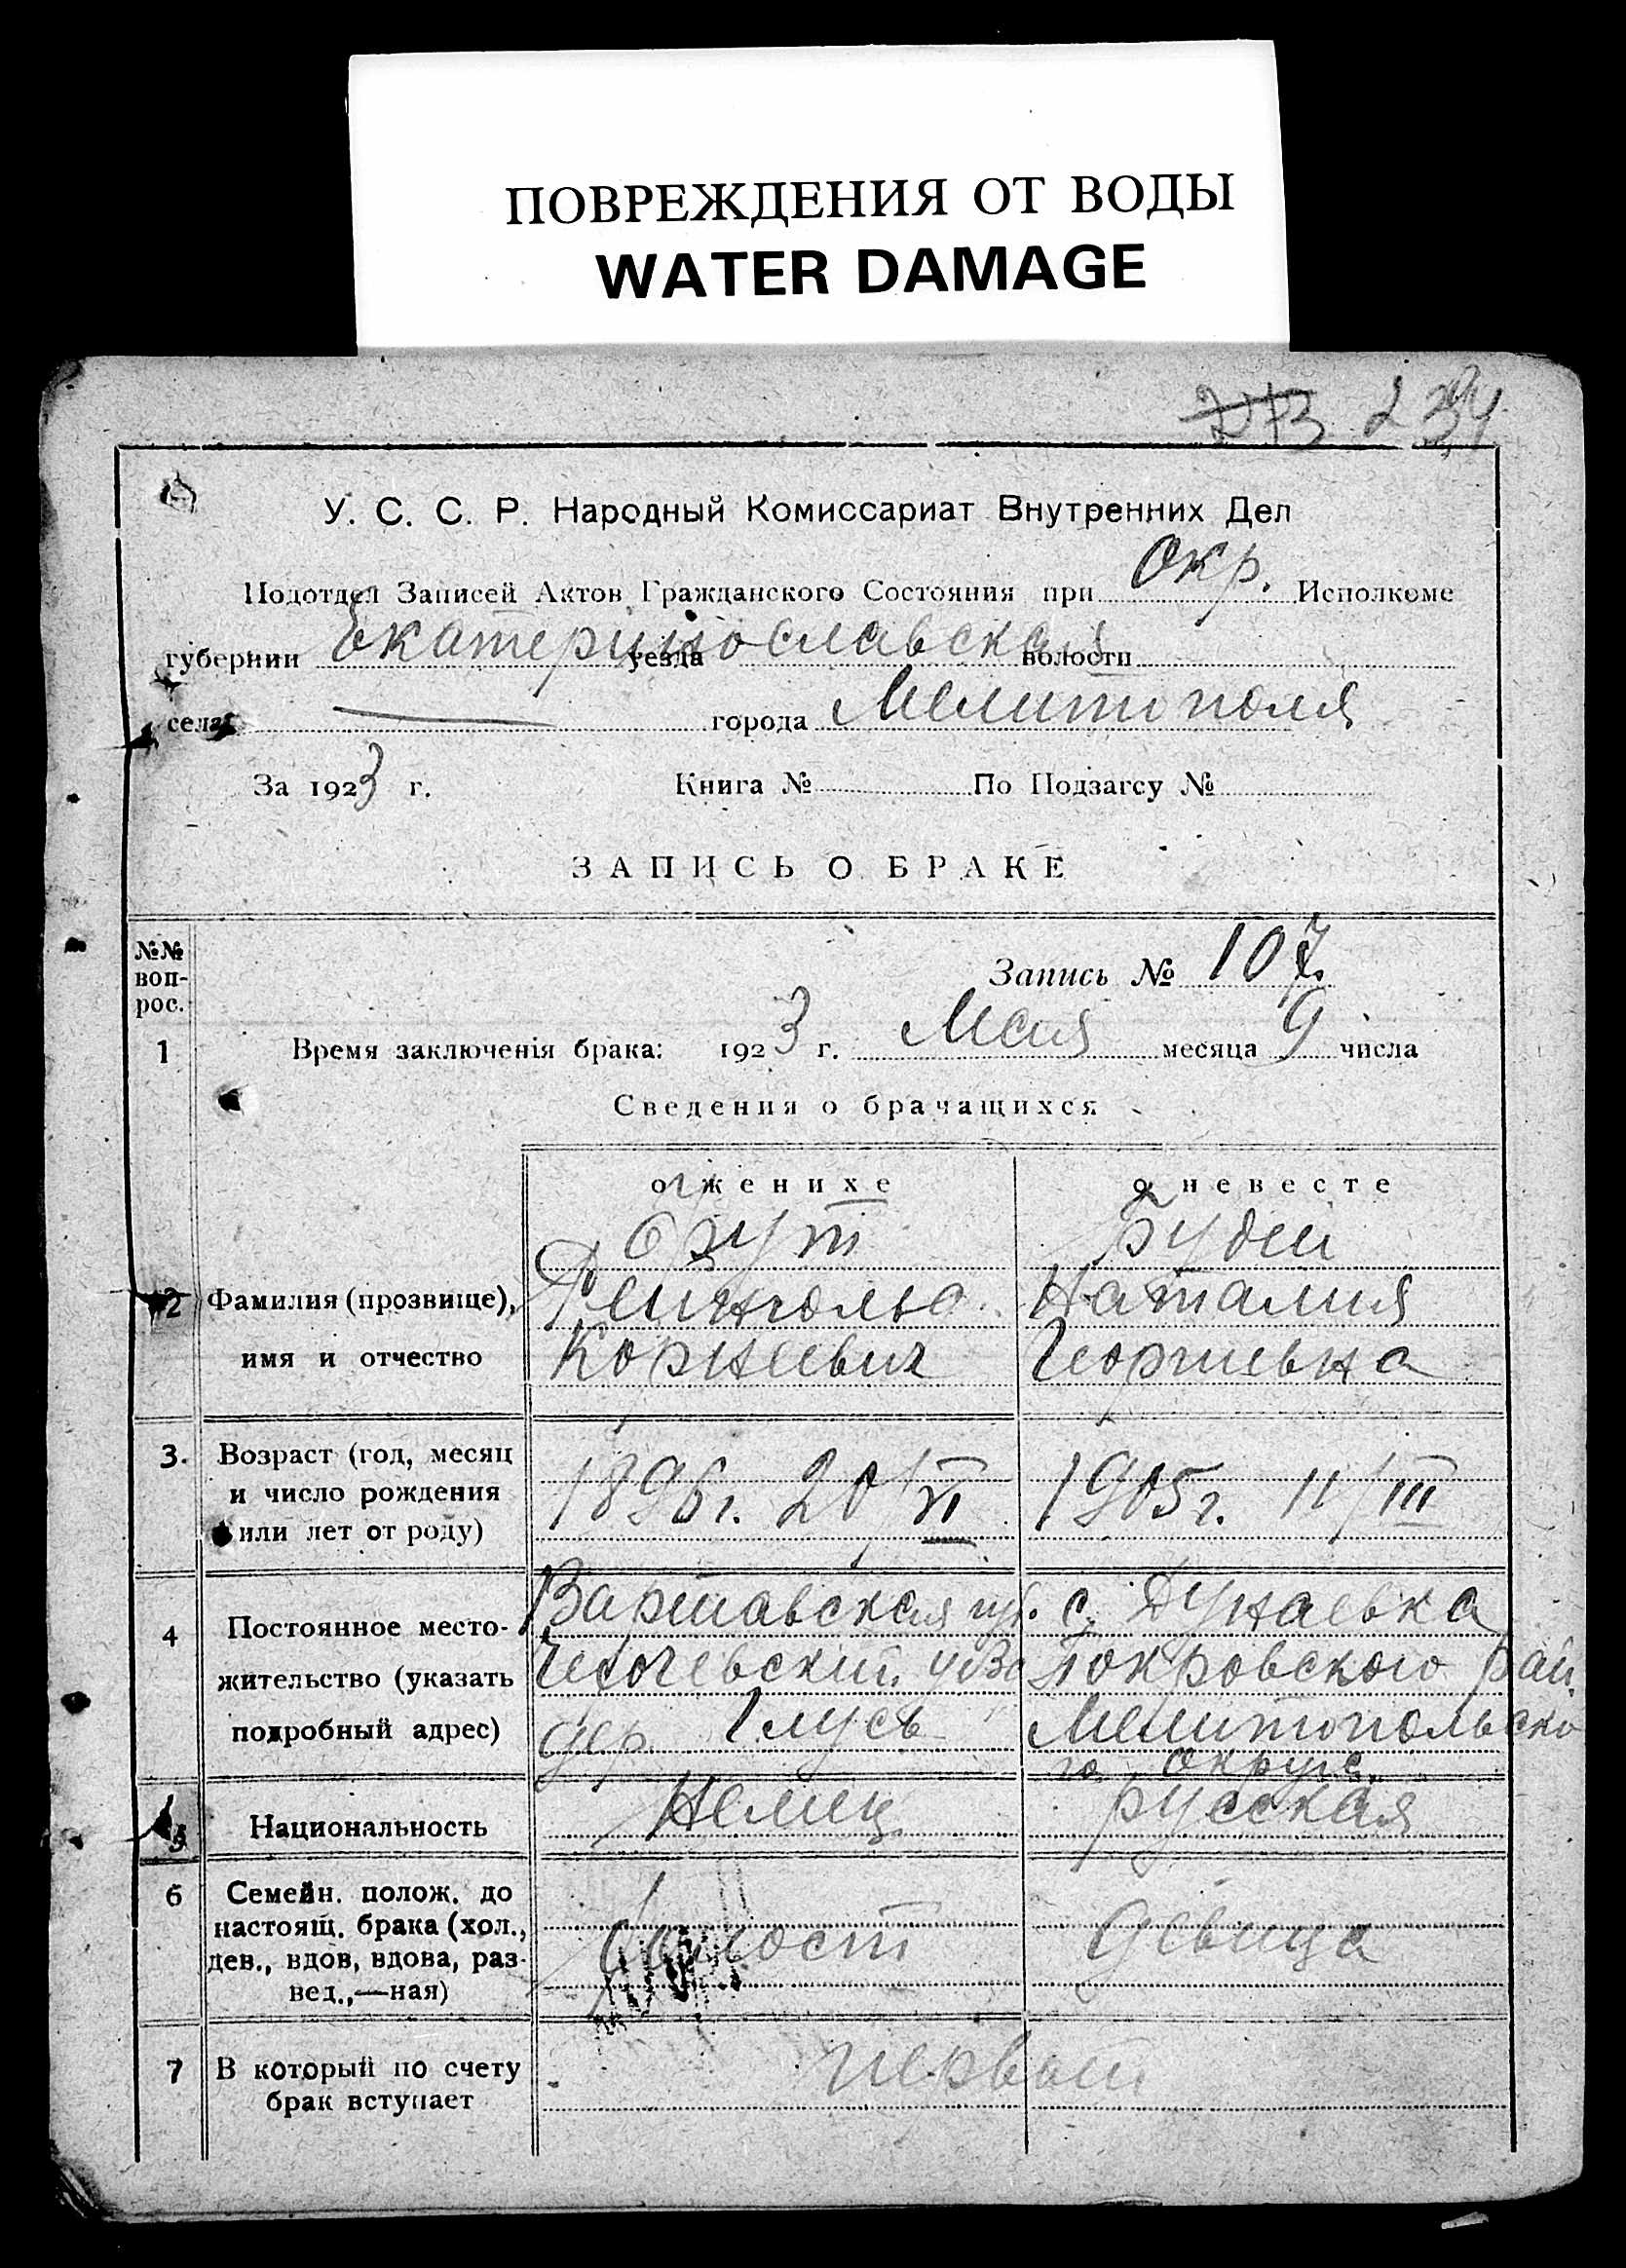 ПОВРЕЖДЕНИЯ ОТ ВОДЫ
WATER DAMAGE
273 234
У. С. С. Р. Народный Комиссариат Внутренних Дел
Подотдел Записей Актов Гражданского Состояния при Окр. Исполкоме
губернии Екатеринославская уезда волости
села — города Мелитополя
За 1923 г. Книга № По Подзагсу №
ЗАПИСЬ О БРАКЕ
№№ воп-
рос.
Запись № 107.
1 Время заключенія брака: 1923 г. Мая месяца 9 числа
Сведения о брачащихся
о женихе о невесте
Будей
2 Фамилия (прозвище), Рейнгольд Наталия
имя и отчество Корнеевич Георгиевна
3. Возраст (год, месяц
и число рождения 1896 г. 20/VI 1905 г. 11/III
или лет от роду)
Варшавская губ. с. Дунаевка
4 Постоянное место-
жительство (указать уезд Покровского рай.
подробный адрес) дер. Глусь Мелитопольско
го округа.
5 Национальность Немец русская
6 Семейн. полож. до
настоящ. брака (хол., холост девица
дев., вдов, вдова, раз-
вед.,—ная)
7 В который по счету первый
брак вступает